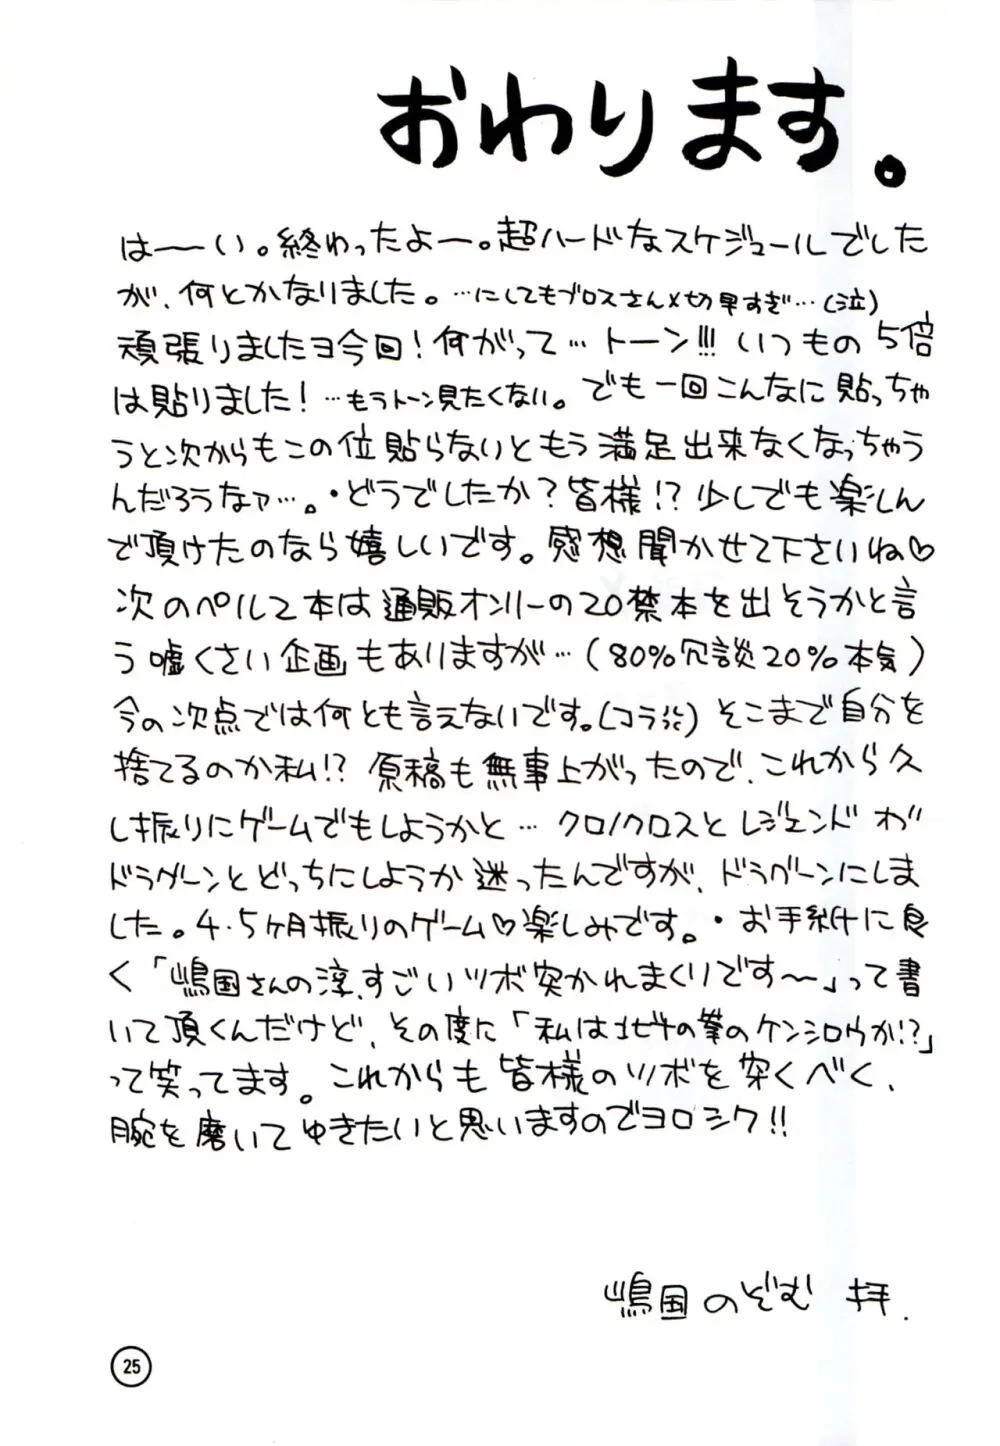 おわります。
は――い。終わったよー。超ハードなスケジュールでした
が、何とかなりました。…にしてもブロスさん〆切早すぎ…(泣)
頑張りましたヨ今回！何がって…トーン!!! いつもの5倍
は貼りました！…もうトーン見たくない。でも一回こんなに貼っちゃ
うと次からもこの位貼らないともう満足出来なくなっちゃう
んだろうなァ…。・どうでしたか？皆様!?少しでも楽しん
で頂けたのなら嬉しいです。感想聞かせて下さいね♡
次のペルソ本は通販オンリーの20禁本を出そうかと言
う嘘くさい企画もありますが…(80%冗談20%本気)
今の次点では何とも言えないです。(コラ) そこまで自分を
捨てるのか私!? 原稿も無事上がったので、これから久
し振りにゲームでもしようかと…クロノクロスとレジェンドオブ
ドラグーンとどっちにしようか迷ったんですが、ドラグーンにしま
した。4・5ヶ月振りのゲーム♡楽しみです。・お手紙に良
く「嶋国さんの淳、すごいツボ突かれまくりです〜」って書
いて頂くんだけど、その度に「私は北斗の拳のケンシロウか!?」
って笑ってます。これからも皆様のツボを突くべく、
腕を磨いてゆきたいと思いますのでヨロシク!!
嶋国のぞむ 拝.
25